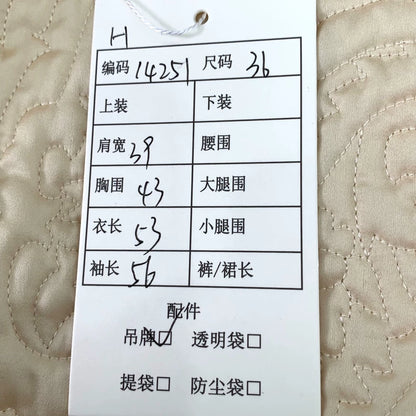 H
编码 14251 尺码 36
上装 下装
肩宽 39 腰围
胸围 43 大腿围
衣长 53 小腿围
袖长 56 裤/裙长
配件
吊牌☑ 透明袋□
提袋□ 防尘袋□